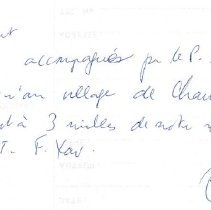 nt
accompagnés par le P.
qu'au village de Chau
à 3 milles de notre
F. Xav.